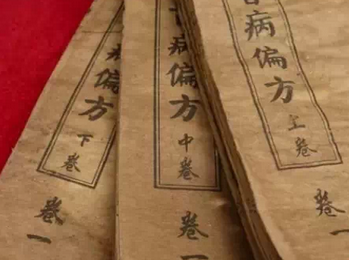 病偏方
上卷
卷一
病偏方
中卷
卷
病偏方
下卷
卷一